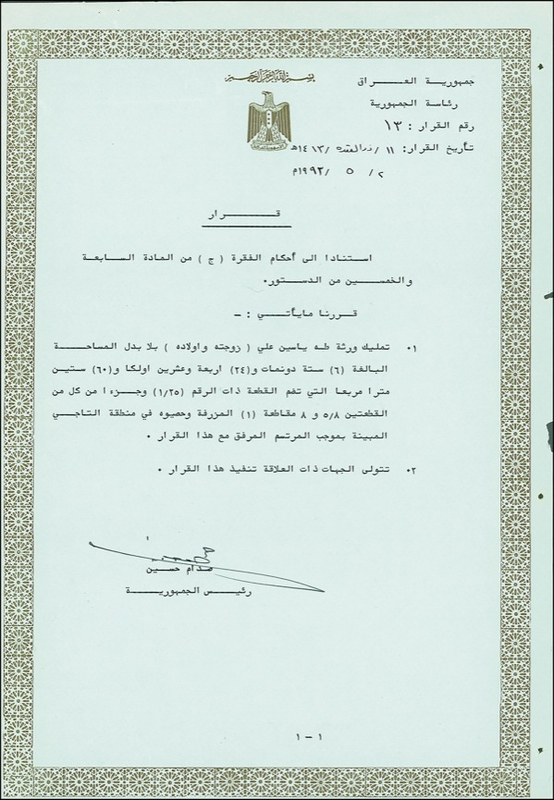 بسم الله الرحمن الرحيم
جمهورية العراق
رئاسة الجمهورية
رقم القرار : ١٣
تأريخ القرار: ١١/ ذو القعدة /١٤١٣هـ
٢ / ٥ /١٩٩٣م
قرار
استنادا الى أحكام الفقرة ( ج ) من المادة السابعة
والخمسين من الدستور.
قررنا مايأتي : ـ
١. تمليك ورثة طه ياسين علي ( زوجته واولاده ) بلا بدل المساحة
البالغة (٦) ستة دونمات و(٢٤) اربعة وعشرين اولكا و(٦٠) ستين
مترا مربعا التي تضم القطعة ذات الرقم (١/٢٥) وجزءا من كل من
القطعتين ٥/٨ و ٨ مقاطعة (١) المزرفة وحصيوه في منطقة التاجي
المبينة بموجب المرتسم المرفق مع هذا القرار .
٢. تتولى الجهات ذات العلاقة تنفيذ هذا القرار .
صدام حسين
رئيس الجمهورية
١ - ١